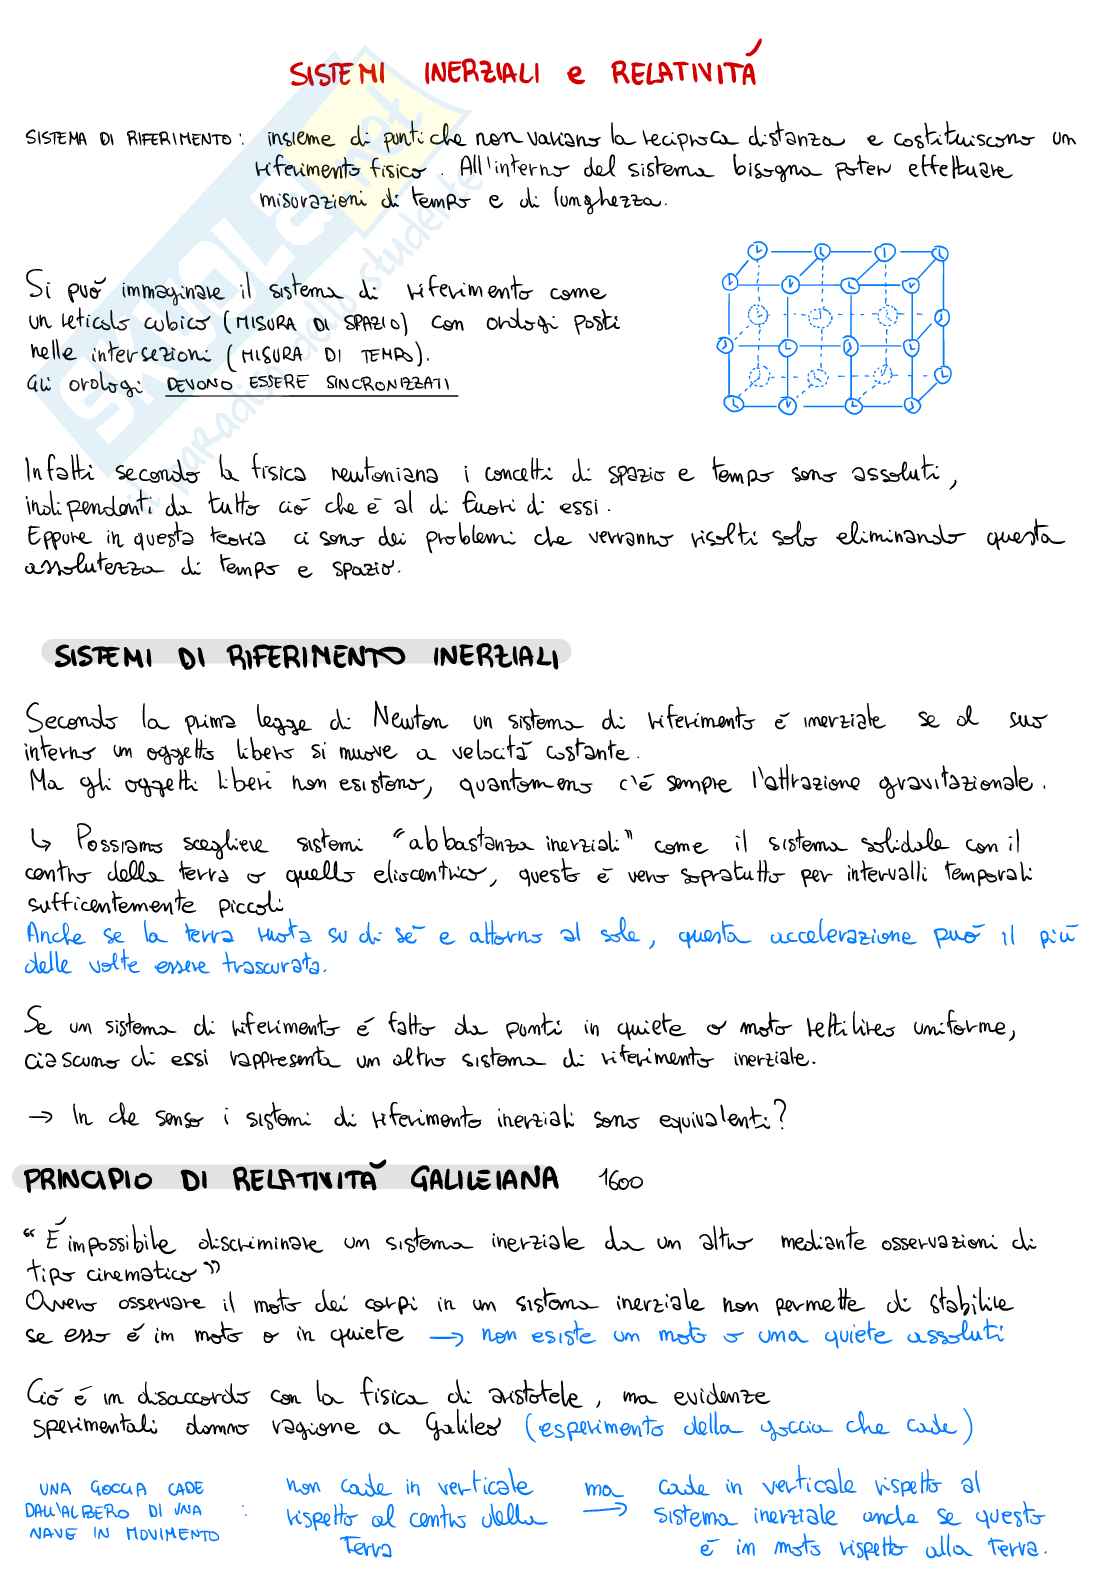 SISTEMI INERZIALI e RELATIVITÁ
SISTEMA DI RIFERIMENTO: insieme di punti che non variano la reciproca distanza e costituiscono un
riferimento fisico. All'interno del sistema bisogna poter effettuare
misurazioni di tempo e di lunghezza.
Si può immaginare il sistema di riferimento come
un reticolo cubico (MISURA DI SPAZIO) con orologi posti
nelle intersezioni (MISURA DI TEMPO).
Gli orologi DEVONO ESSERE SINCRONIZZATI
Infatti secondo la fisica newtoniana i concetti di spazio e tempo sono assoluti,
indipendenti da tutto ciò che è al di fuori di essi.
Eppure in questa teoria ci sono dei problemi che verranno risolti solo eliminando questa
assolutezza di tempo e spazio.
SISTEMI DI RIFERIMENTO INERZIALI
Secondo la prima legge di Newton un sistema di riferimento é inerziale se al suo
interno un oggetto libero si muove a velocitá costante.
Ma gli oggetti liberi non esistono, quantomeno c'é sempre l'attrazione gravitazionale.
↳ Possiamo scegliere sistemi "abbastanza inerziali" come il sistema solidale con il
centro della terra o quello eliocentrico, questo é vero sopratutto per intervalli temporali
sufficentemente piccoli
Anche se la terra ruota su di sé e attorno al sole, questa accelerazione può il più
delle volte essere trascurata.
Se un sistema di riferimento é fatto da punti in quiete o moto rettilineo uniforme,
ciascuno di essi rappresenta un altro sistema di riferimento inerziale.
→ In che senso i sistemi di riferimento inerziali sono equivalenti?
PRINCIPIO DI RELATIVITÁ GALILEIANA 1600
"É impossibile discriminare un sistema inerziale da un altro mediante osservazioni di
tipo cinematico"
Ovvero osservare il moto dei corpi in un sistema inerziale non permette di stabilire
se esso é in moto o in quiete → non esiste un moto o una quiete assoluti
Ció é in disaccordo con la fisica di aristotele, ma evidenze
sperimentali danno ragione a Galileo (esperimento della goccia che cade)
UNA GOCCIA CADE
DALL'ALBERO DI UNA
NAVE IN MOVIMENTO :
non cade in verticale
rispetto al centro della
Terra
ma
→
cade in verticale rispetto al
sistema inerziale anche se questo
é in moto rispetto alla terra.
SKUOLA.net
il paradiso dello studente